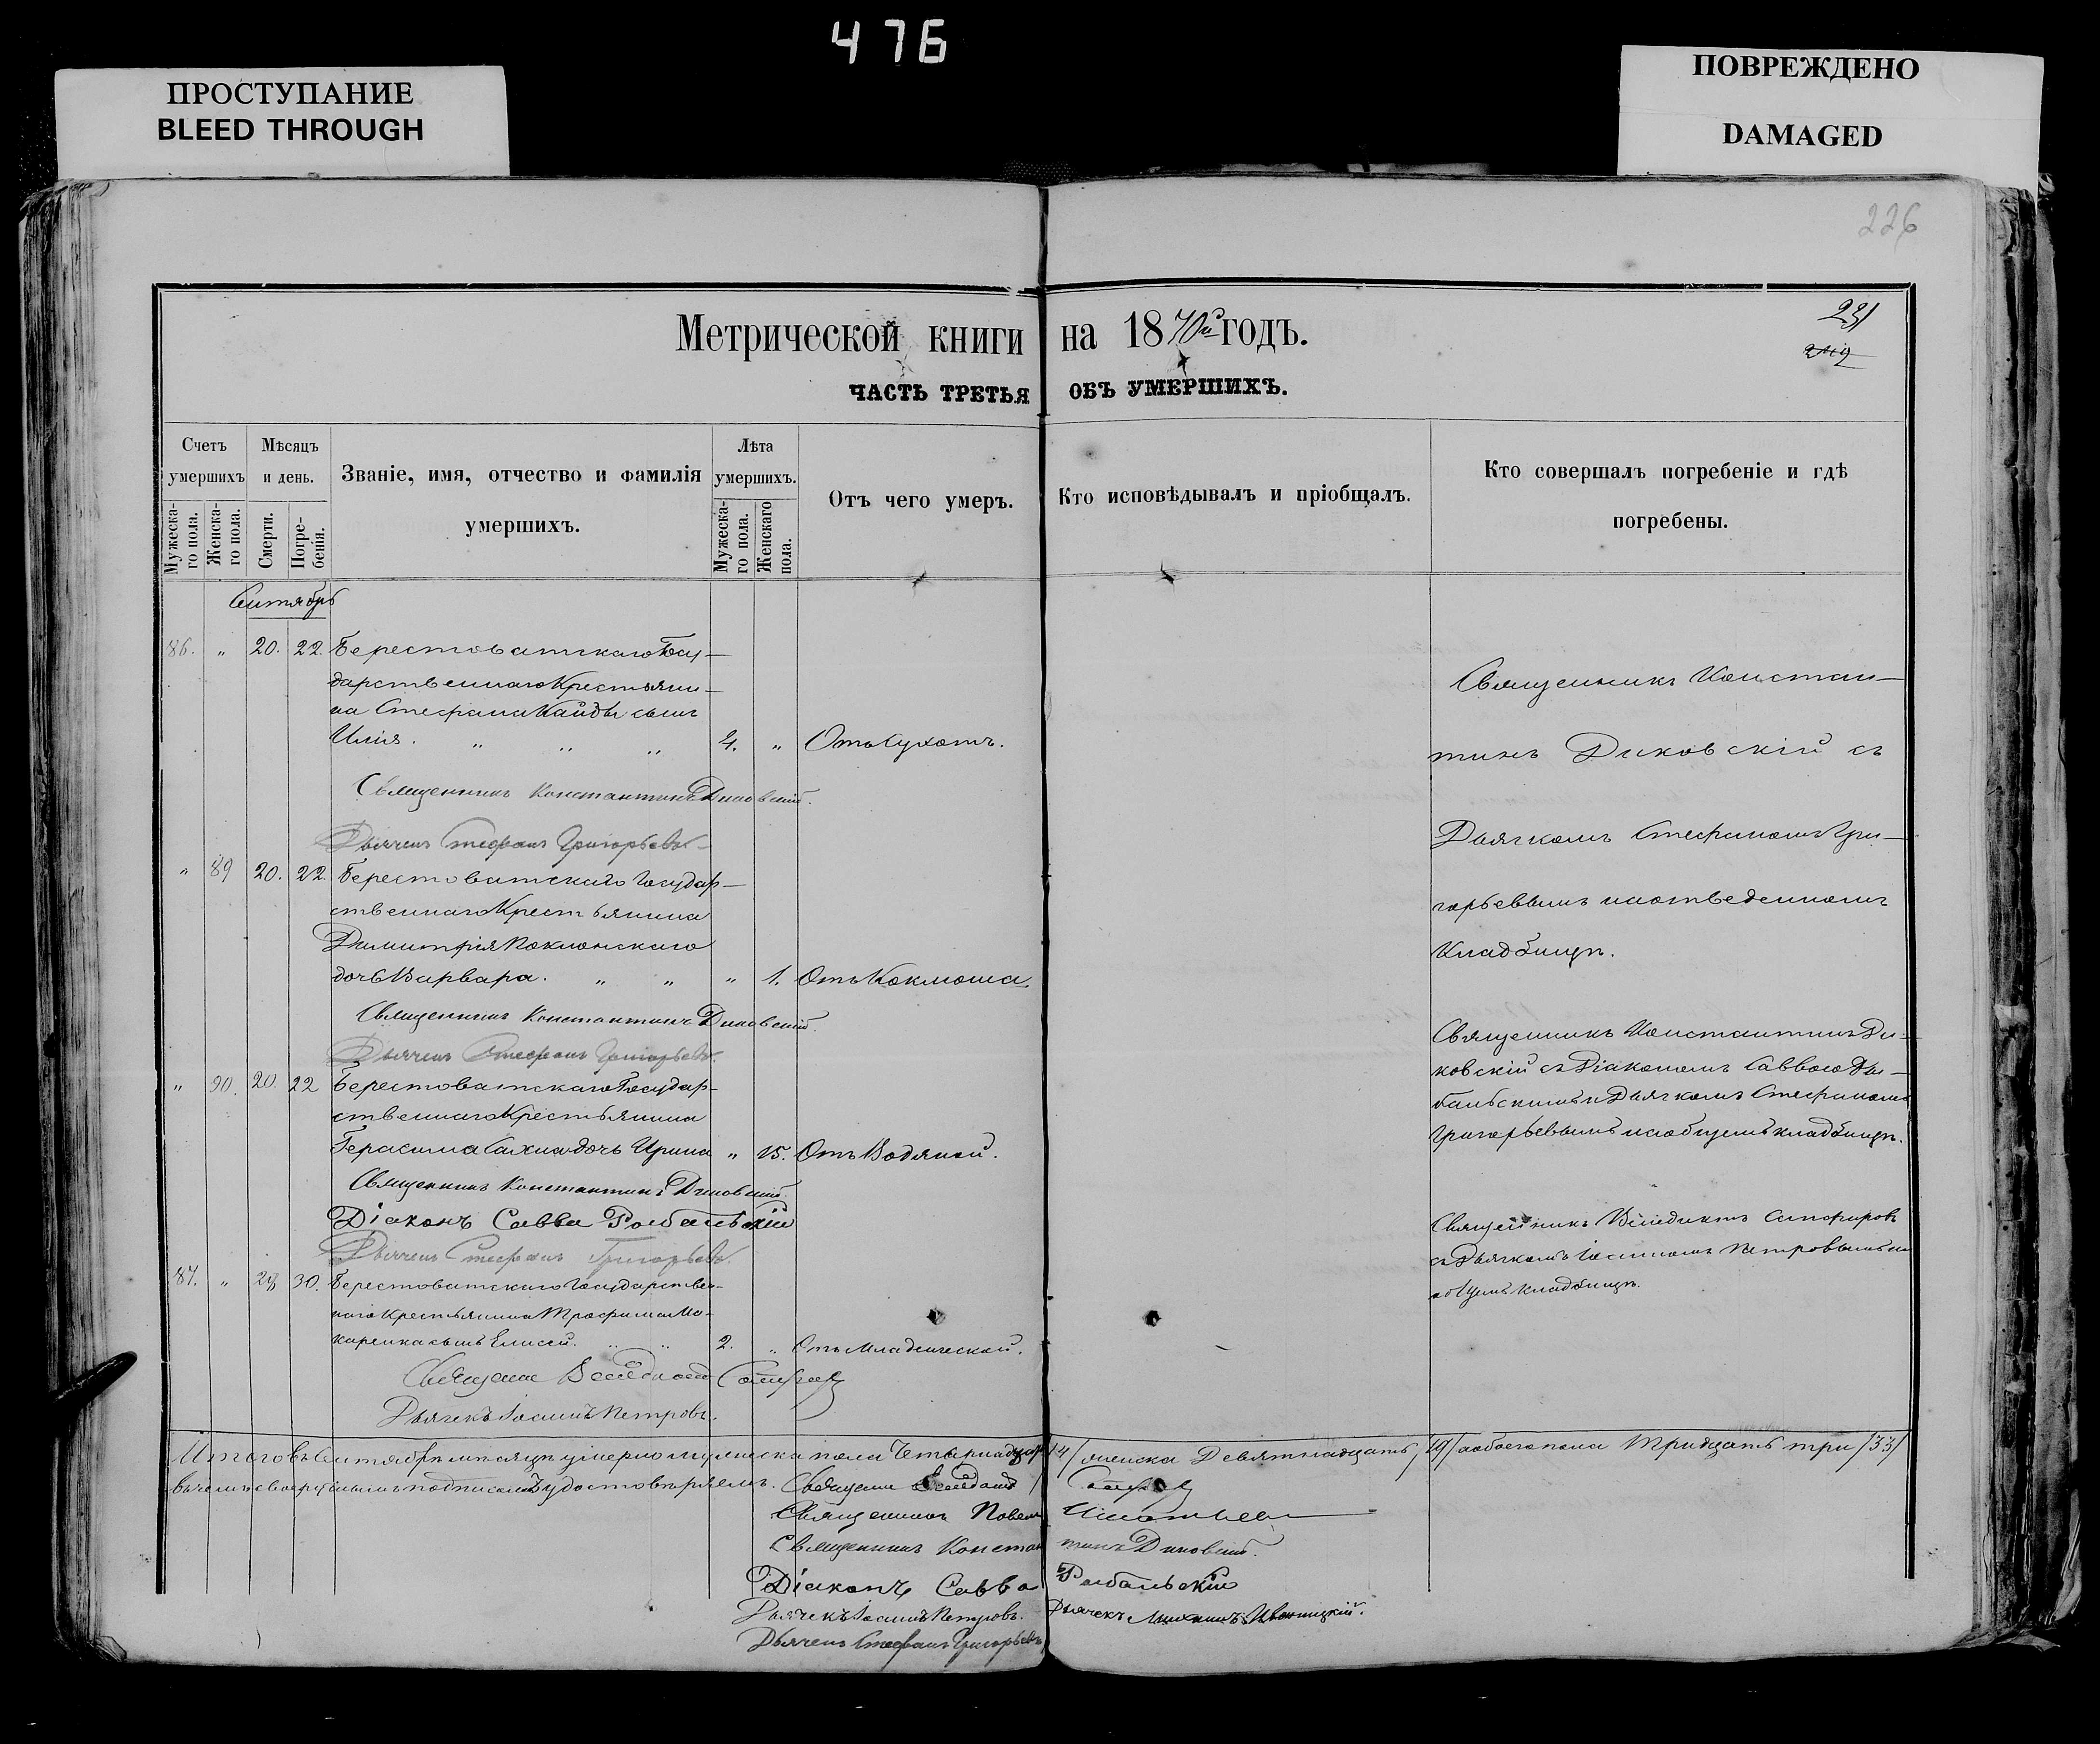 476
ПРОСТУПАНИЕ
BLEED THROUGH
ПОВРЕЖДЕНО
DAMAGED
226
Метрической книги на 1870й годъ.
231
ЧАСТЬ ТРЕТЬЯ ОБЪ УМЕРШИХЪ.
Счетъ умершихъ
Мужеска-го пола.
Женска-го пола.
Мѣсяцъ и день.
Смерти.
Погре-бенія.
Званіе, имя, отчество и фамилія умершихъ.
Лѣта умершихъ.
Мужеска-го пола.
Женскаго пола.
Отъ чего умеръ.
Кто исповѣдывалъ и пріобщалъ.
Кто совершалъ погребеніе и гдѣ погребены.
Сентябрь
86. " 20. 22. Берестоватскаго Госу-
дарственнаго Крестьяни-
на Стефана Кайды сынъ
Илія. " " " 4. " Отъ Сухотъ.
Священникъ Константинъ Диковскій.
Дьячекъ Стефанъ Григорьевъ
Священникъ Констан-
тинъ Диковскій съ
Дьячкомъ Стефаномъ Гри-
горьевымъ на отведенномъ
Кладбищѣ.
" 89 20. 22. Берестоватскаго Государ-
ственнаго Крестьянина
Димитрія Поклонскаго
дочь Варвара. " " " 1. Отъ Коклюша.
Священникъ Константинъ Диковскій.
Дьячекъ Стефанъ Григорьевъ.
" 90. 20. 22 Берестоватскаго Государ-
ственнаго Крестьянина
Герасима Сахна дочь Ирина " 15. Отъ Водяной.
Священникъ Константинъ Диковскій
Діаконъ Савва Рыбальскій
Дьячекъ Стефанъ Григорьевъ.
Священникъ Константинъ Ди-
ковскій съ Діакономъ Саввою Ры-
бальскимъ и Дьячкомъ Стефаномъ
Григорьевымъ на общемъ кладбищѣ.
87. " 28 30. Берестоватскаго Государствен-
наго Крестьянина Трофима Ма-
каренка сынъ Елисей. " " 2. " Отъ Младенческой.
Дьячекъ Іосифъ Петровъ.
Священникъ Венедиктъ
съ Дьячкомъ Іосифомъ Петровымъ на
общемъ кладбищѣ.
Итого въ Сентябрѣ мѣсяцѣ умерло мужеска пола Четырнадцать /14/ женска Девятнадцать /19/ а обоего пола Тридцать три /33/
въ чемъ своеручнымъ подписомъ удостовѣряемъ.
Священникъ Павелъ
Священникъ Константинъ Диковскій.
Діаконъ Савва Рыбальскій
Дьячекъ Іосифъ Петровъ. Дьячекъ Михаилъ Иваницкій.
Дьячекъ Стефанъ Григорьевъ